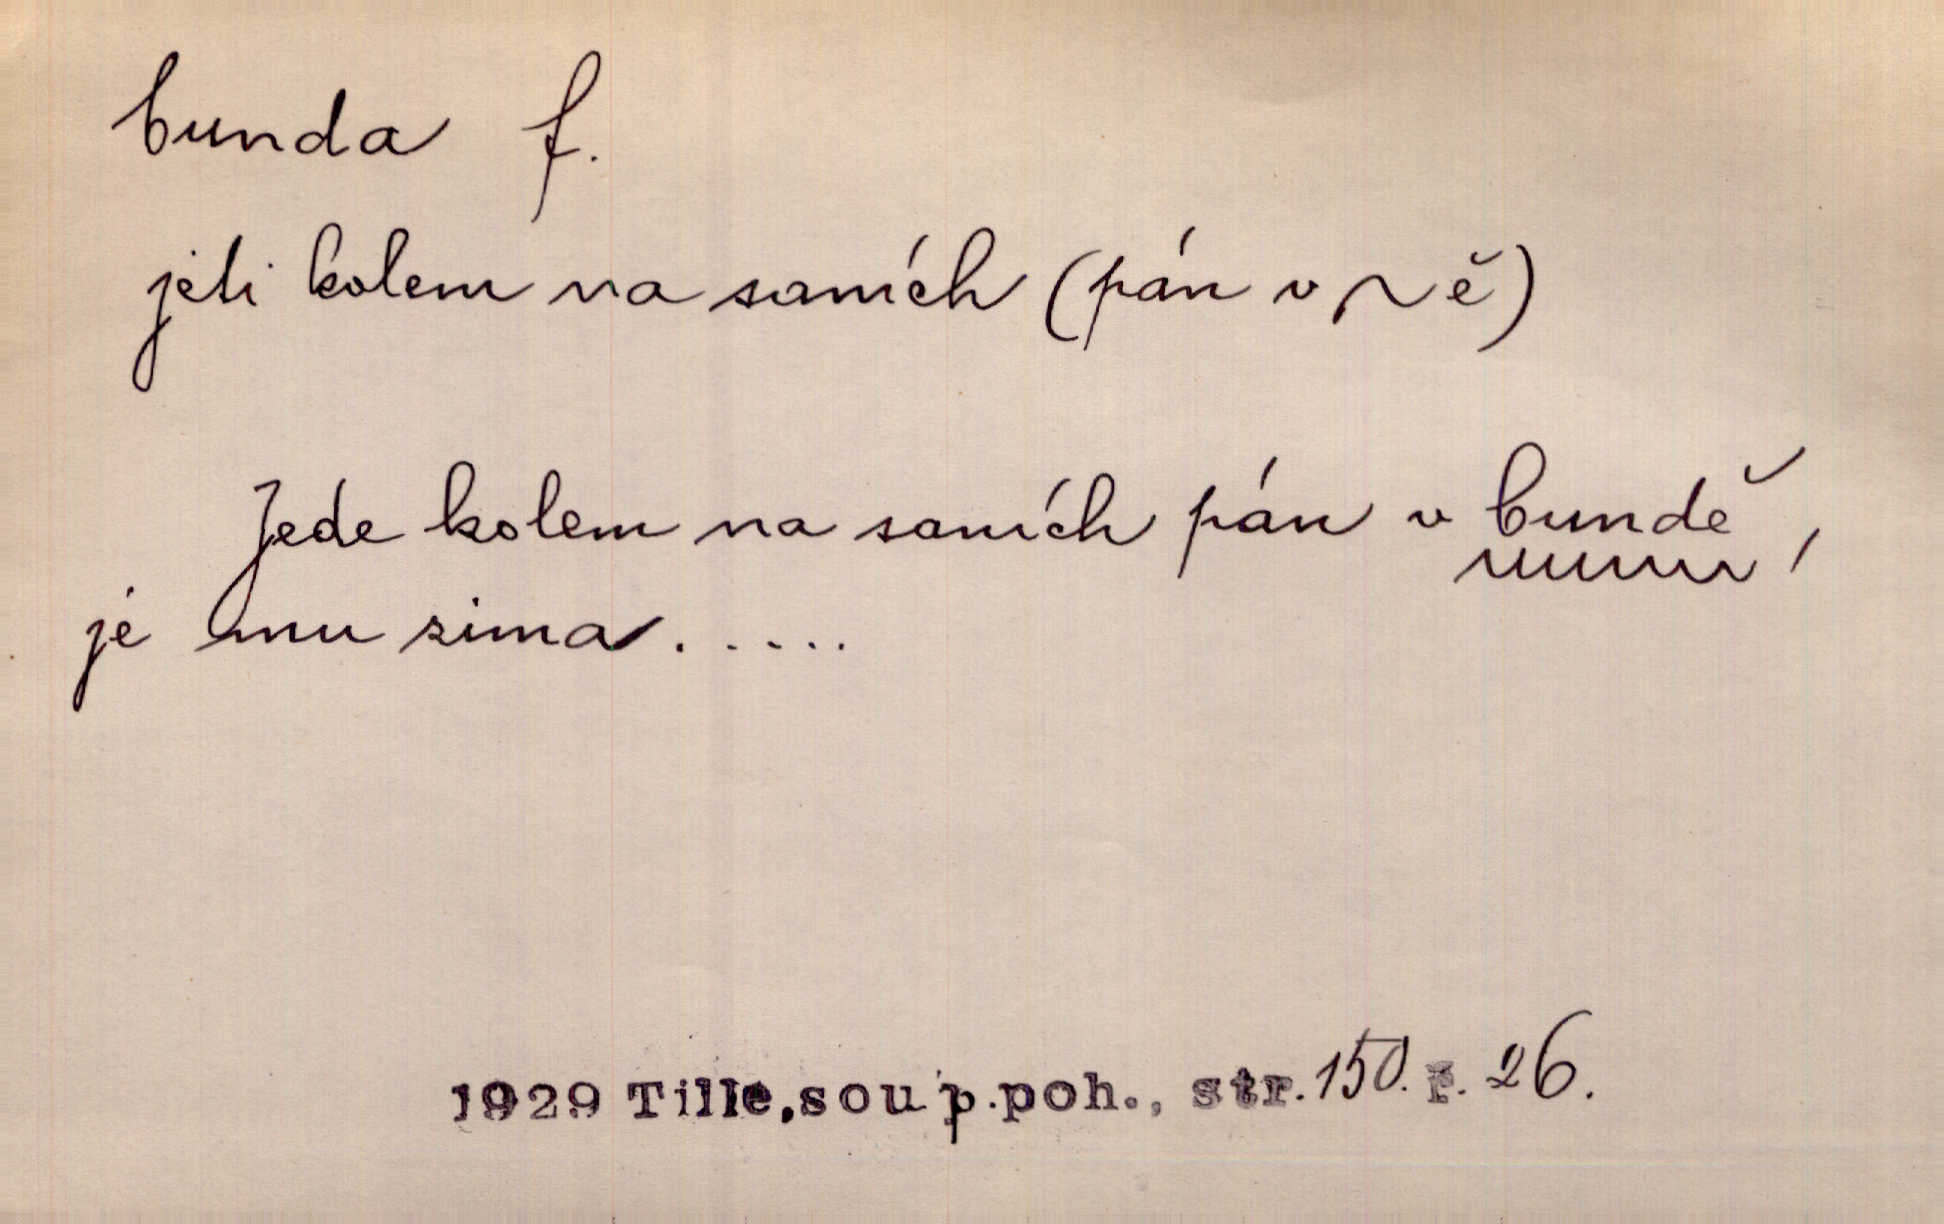 bunda f.
jeti kolem na saních (pán v ~ě)
Jede kolem na saních pán v bundě,
je mu zima.....
1929 Tille, soup. poh., str. 150. ř. 26.